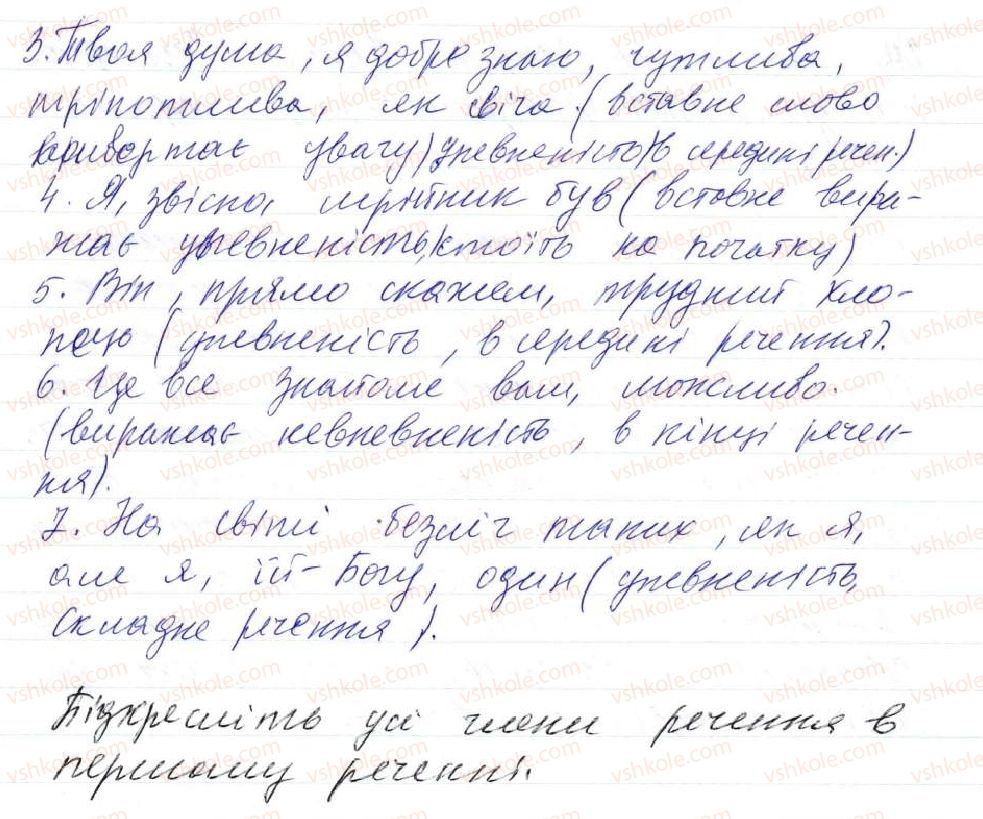 3. Твоя душа, я добре знаю, чутлива,
тріпотлива, як свіча. (вставне слово
привертає увагу) упевненість) в середині речен.)
4. Я, звісно, мрійник був (вставне вира-
жає упевненість, стоїть на початку)
5. Він, прямо скажем, трудний хло-
пець (упевненість, в середині речення).
6. Где все знайоме вам, можливо.
(виражає невпевненість, в кінці речен-
ня).
7. На світі безліч таких, як я,
але я, їй-Богу, один (упевненість,
складне речення).
Підкресліть усі члени речення в
першому реченні.